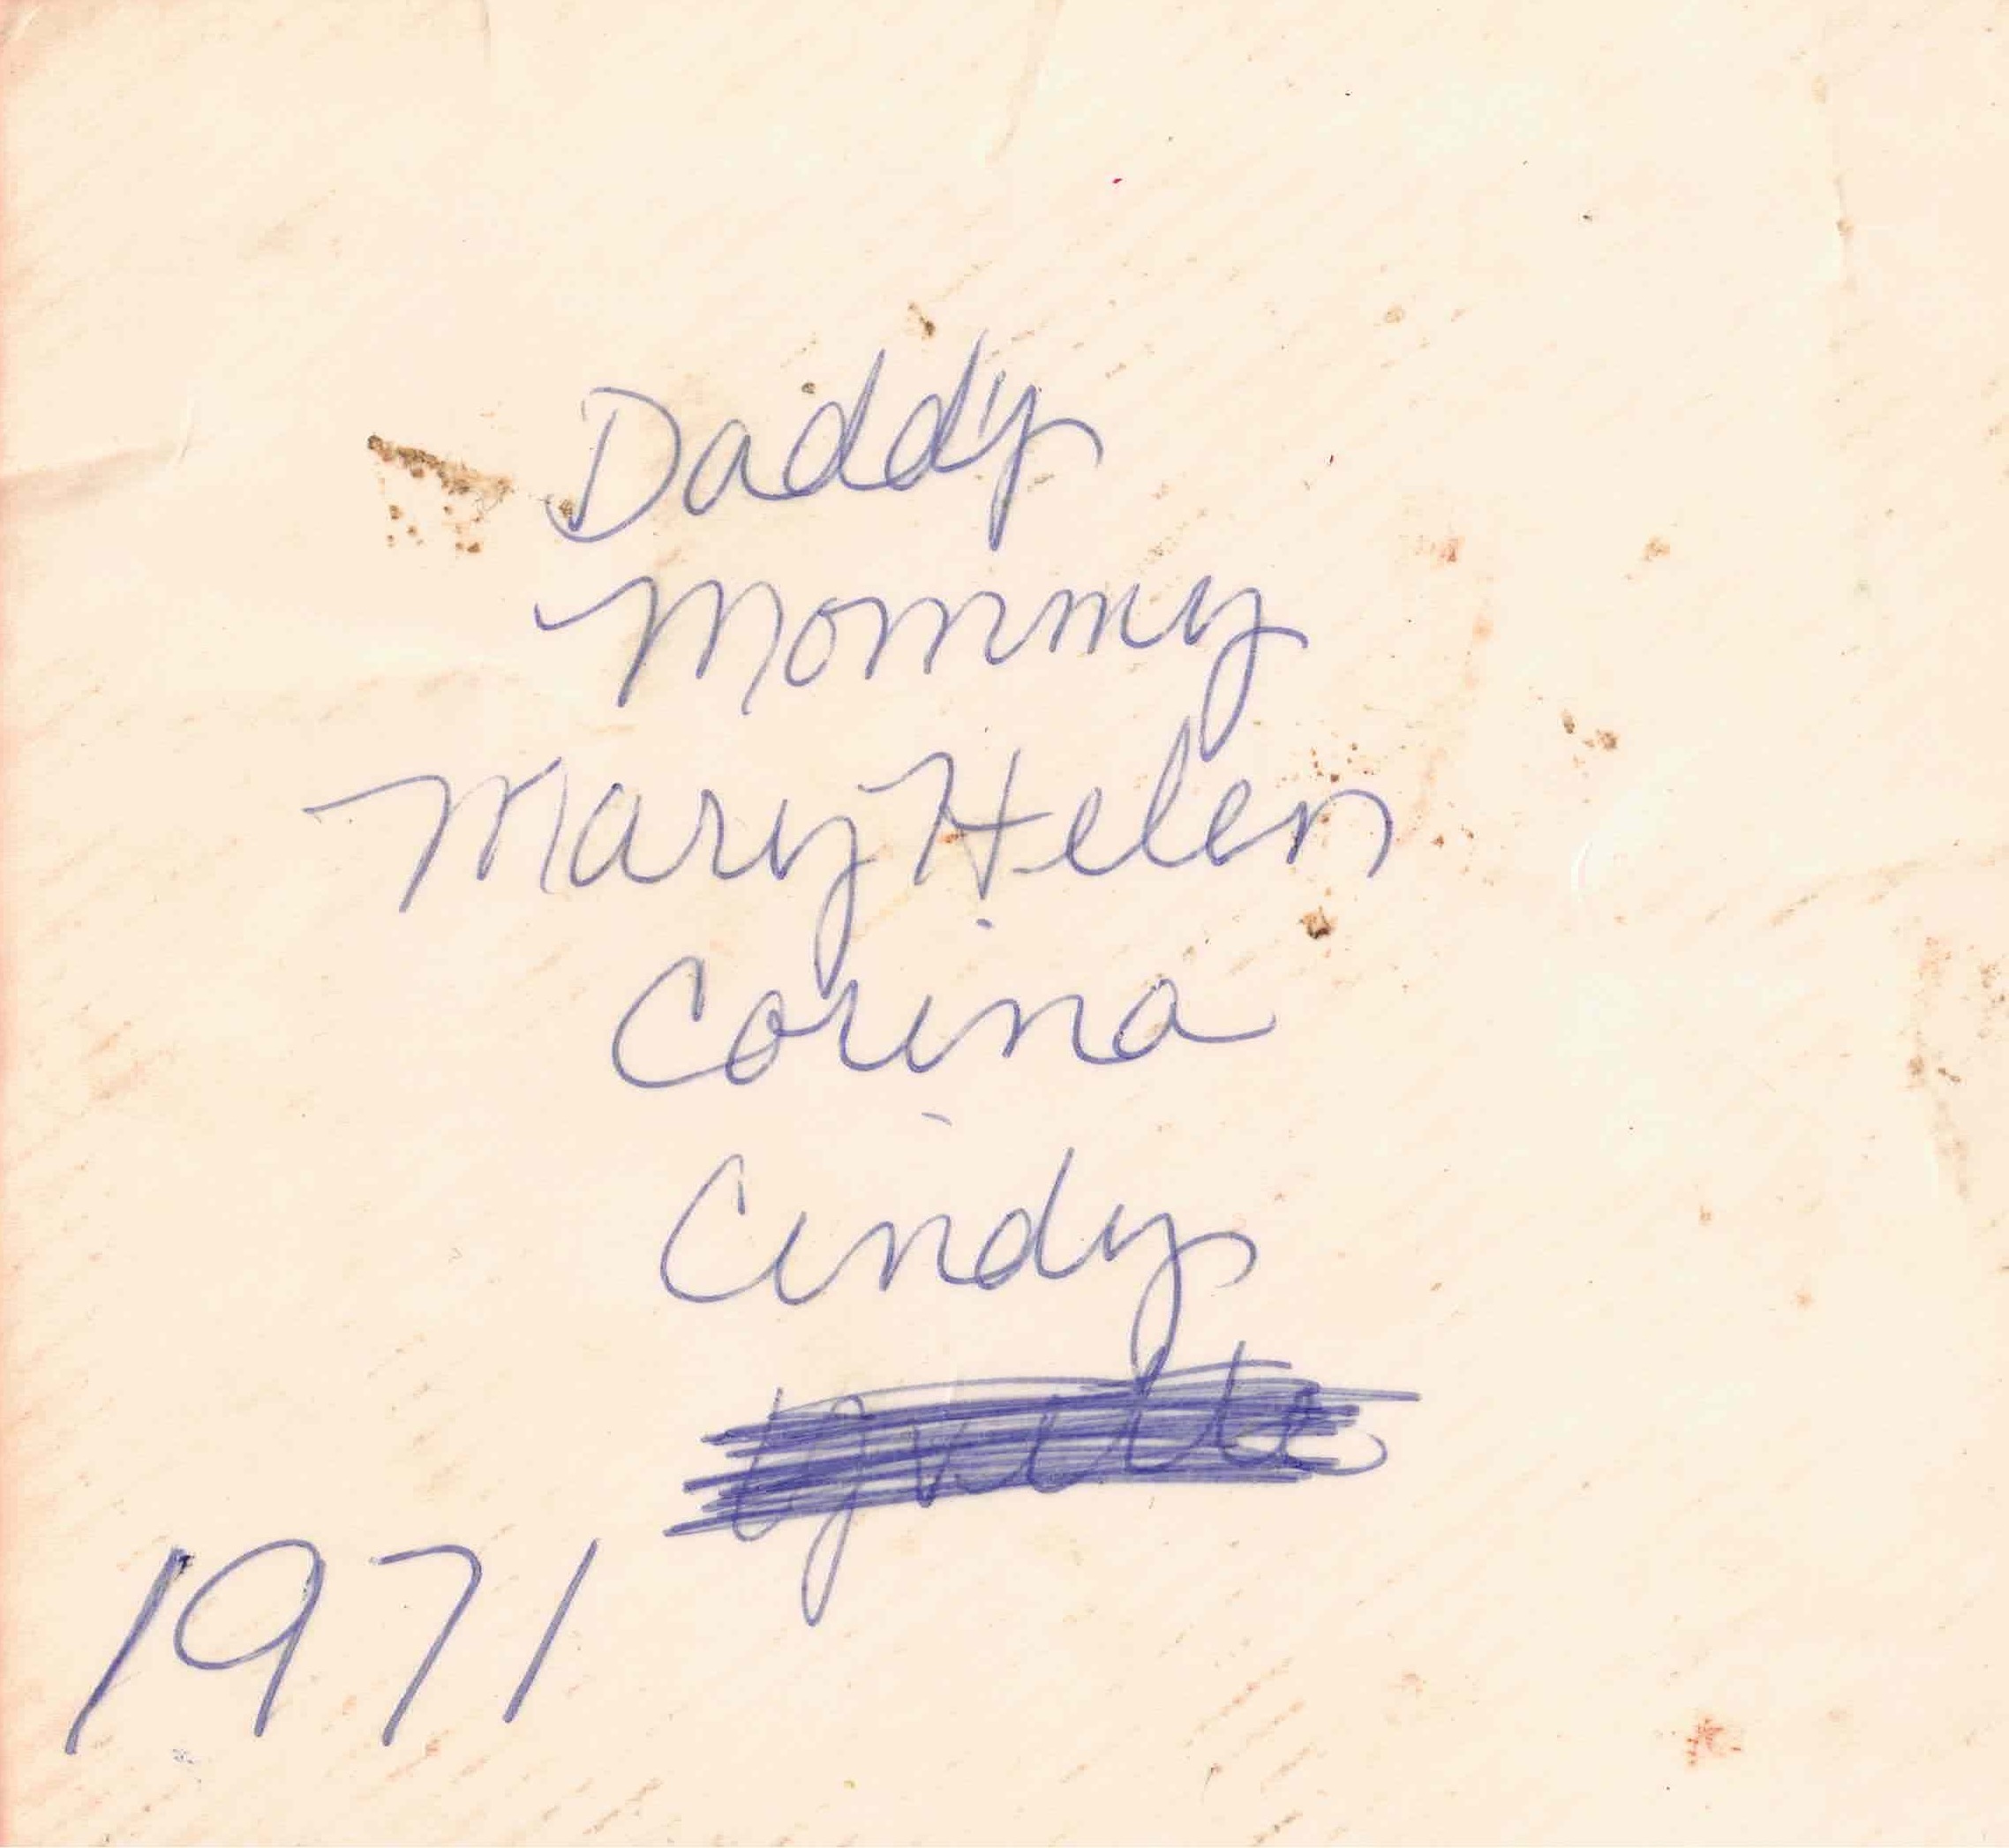 Daddy
Mommy
Mary Helen
Corina
Cindy
1971